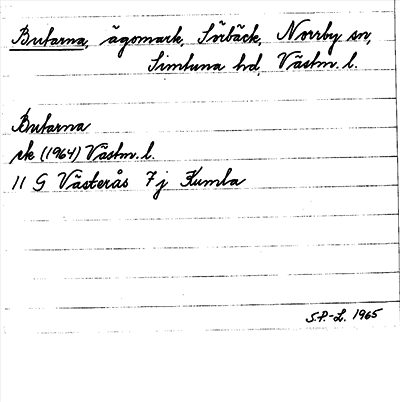 Butarna, ägomark, Sörbäck, Norrby sn,
Simtuna hd, Västm. l.
Butarna
ek (1964) Västm. l.
11 G Västerås 7j Kumla
S.P.-L. 1965